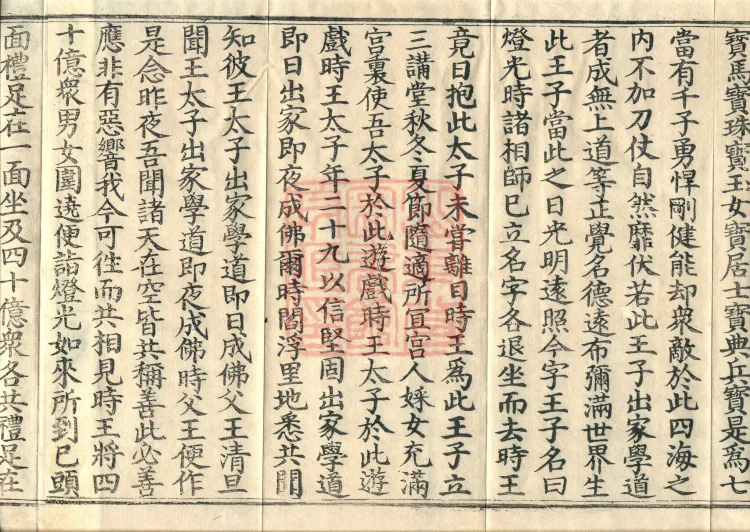 寶馬寶珠寶玉女寶居士寶典兵寶是為七
當有千子勇悍剛健能却衆敵於此四海之
内不加刀仗自然靡伏若此王子出家學道
者成無上道等正覺名德遠布彌滿世界生
此王子當此之日光明遠照今字王子名曰
燈光時諸相師已立名字各退坐而去時王
竟日抱此太子未甞離目時王為此王子立
三講堂秋冬夏節隨適所冝宮人婇女充滿
宮裏使吾太子於此遊戲時王太子於此遊
戲時王太子年二十九以信堅固出家學道
即日出家即夜成佛爾時閻浮里地悉共聞
知彼王太子出家學道即日成佛父王清旦
聞王太子出家學道即夜成佛時父王便作
是念昨夜吾聞諸天在空皆共稱善此必善
應非有惡響我今可徃而共相見時王將四
十億衆男女圍遶便詣燈光如來所到已頭
面禮足在一面坐及四十億衆各共禮足在